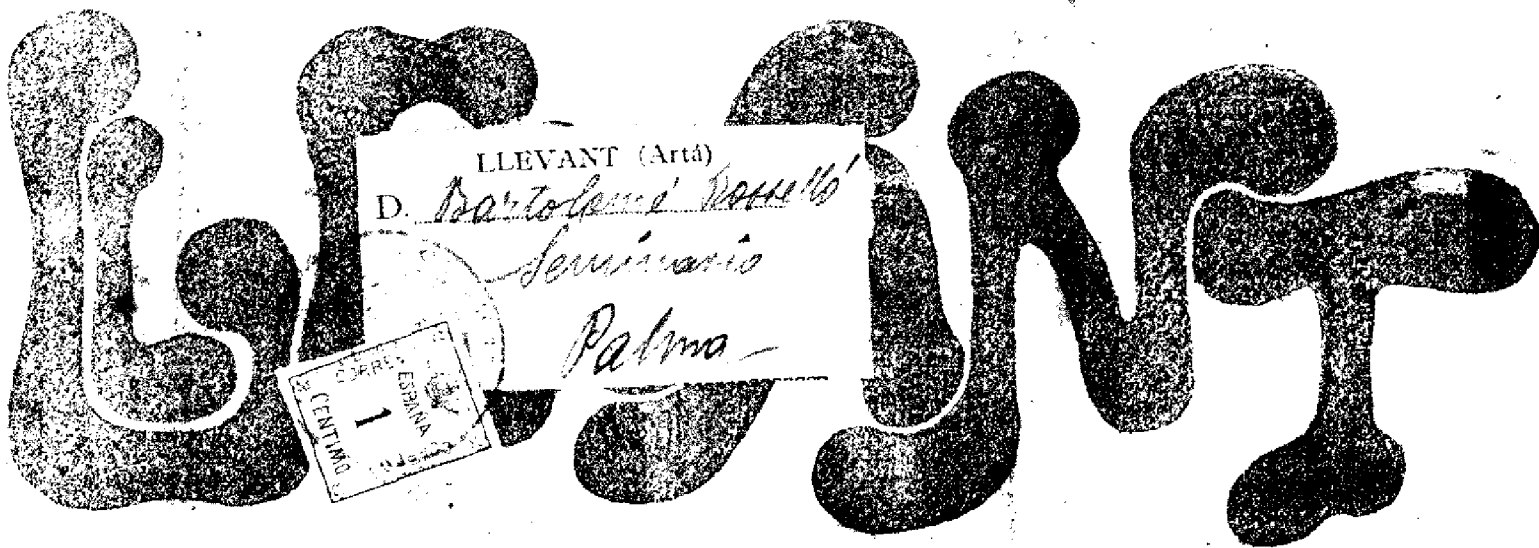 LLEVANT
LLEVANT (Artá)
D. Bartolomé Rosselló
Seminario
Palma
CORREOS ESPAÑA
1
CENTIMO